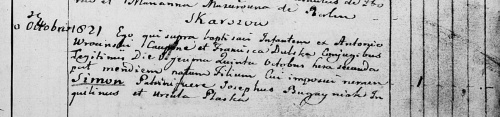 et Marianna Mazurowna de
Skarszow
25
Octobris 1821 Ego qui supra baptisavi Infantem ex Antonio
et Francisca Dulska Conjugibus
Legitimis Die vigesima Quinta Octobris hora secunda
post meridiem natum Filium Cui imposui nomen
Simon Patrini fuere Josephus In
quilinus et Ursula Plaska